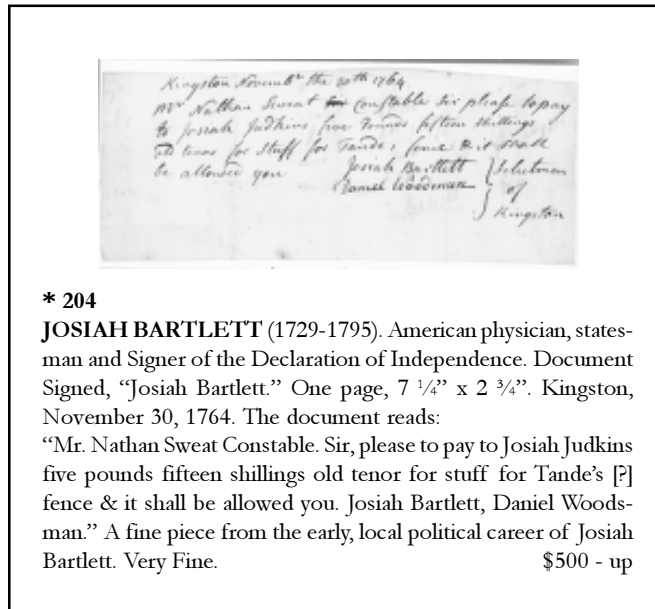 Kingston Novembr the 30th 1764
Mr Nathan Sweat Constable Sir please to pay
to Josiah Judkins five Pounds fifteen shillings
old tenor for stuff for Tande's fence & it shall
be allowed you Josiah Bartlett } Selectmen
Daniel Woodsman of
Kingston
* 204
JOSIAH BARTLETT (1729-1795). American physician, states-
man and Signer of the Declaration of Independence. Document
Signed, “Josiah Bartlett.” One page, 7 ¼” x 2 ¾”. Kingston,
November 30, 1764. The document reads:
“Mr. Nathan Sweat Constable. Sir, please to pay to Josiah Judkins
five pounds fifteen shillings old tenor for stuff for Tande’s [?]
fence & it shall be allowed you. Josiah Bartlett, Daniel Woods-
man.” A fine piece from the early, local political career of Josiah
Bartlett. Very Fine. $500 - up